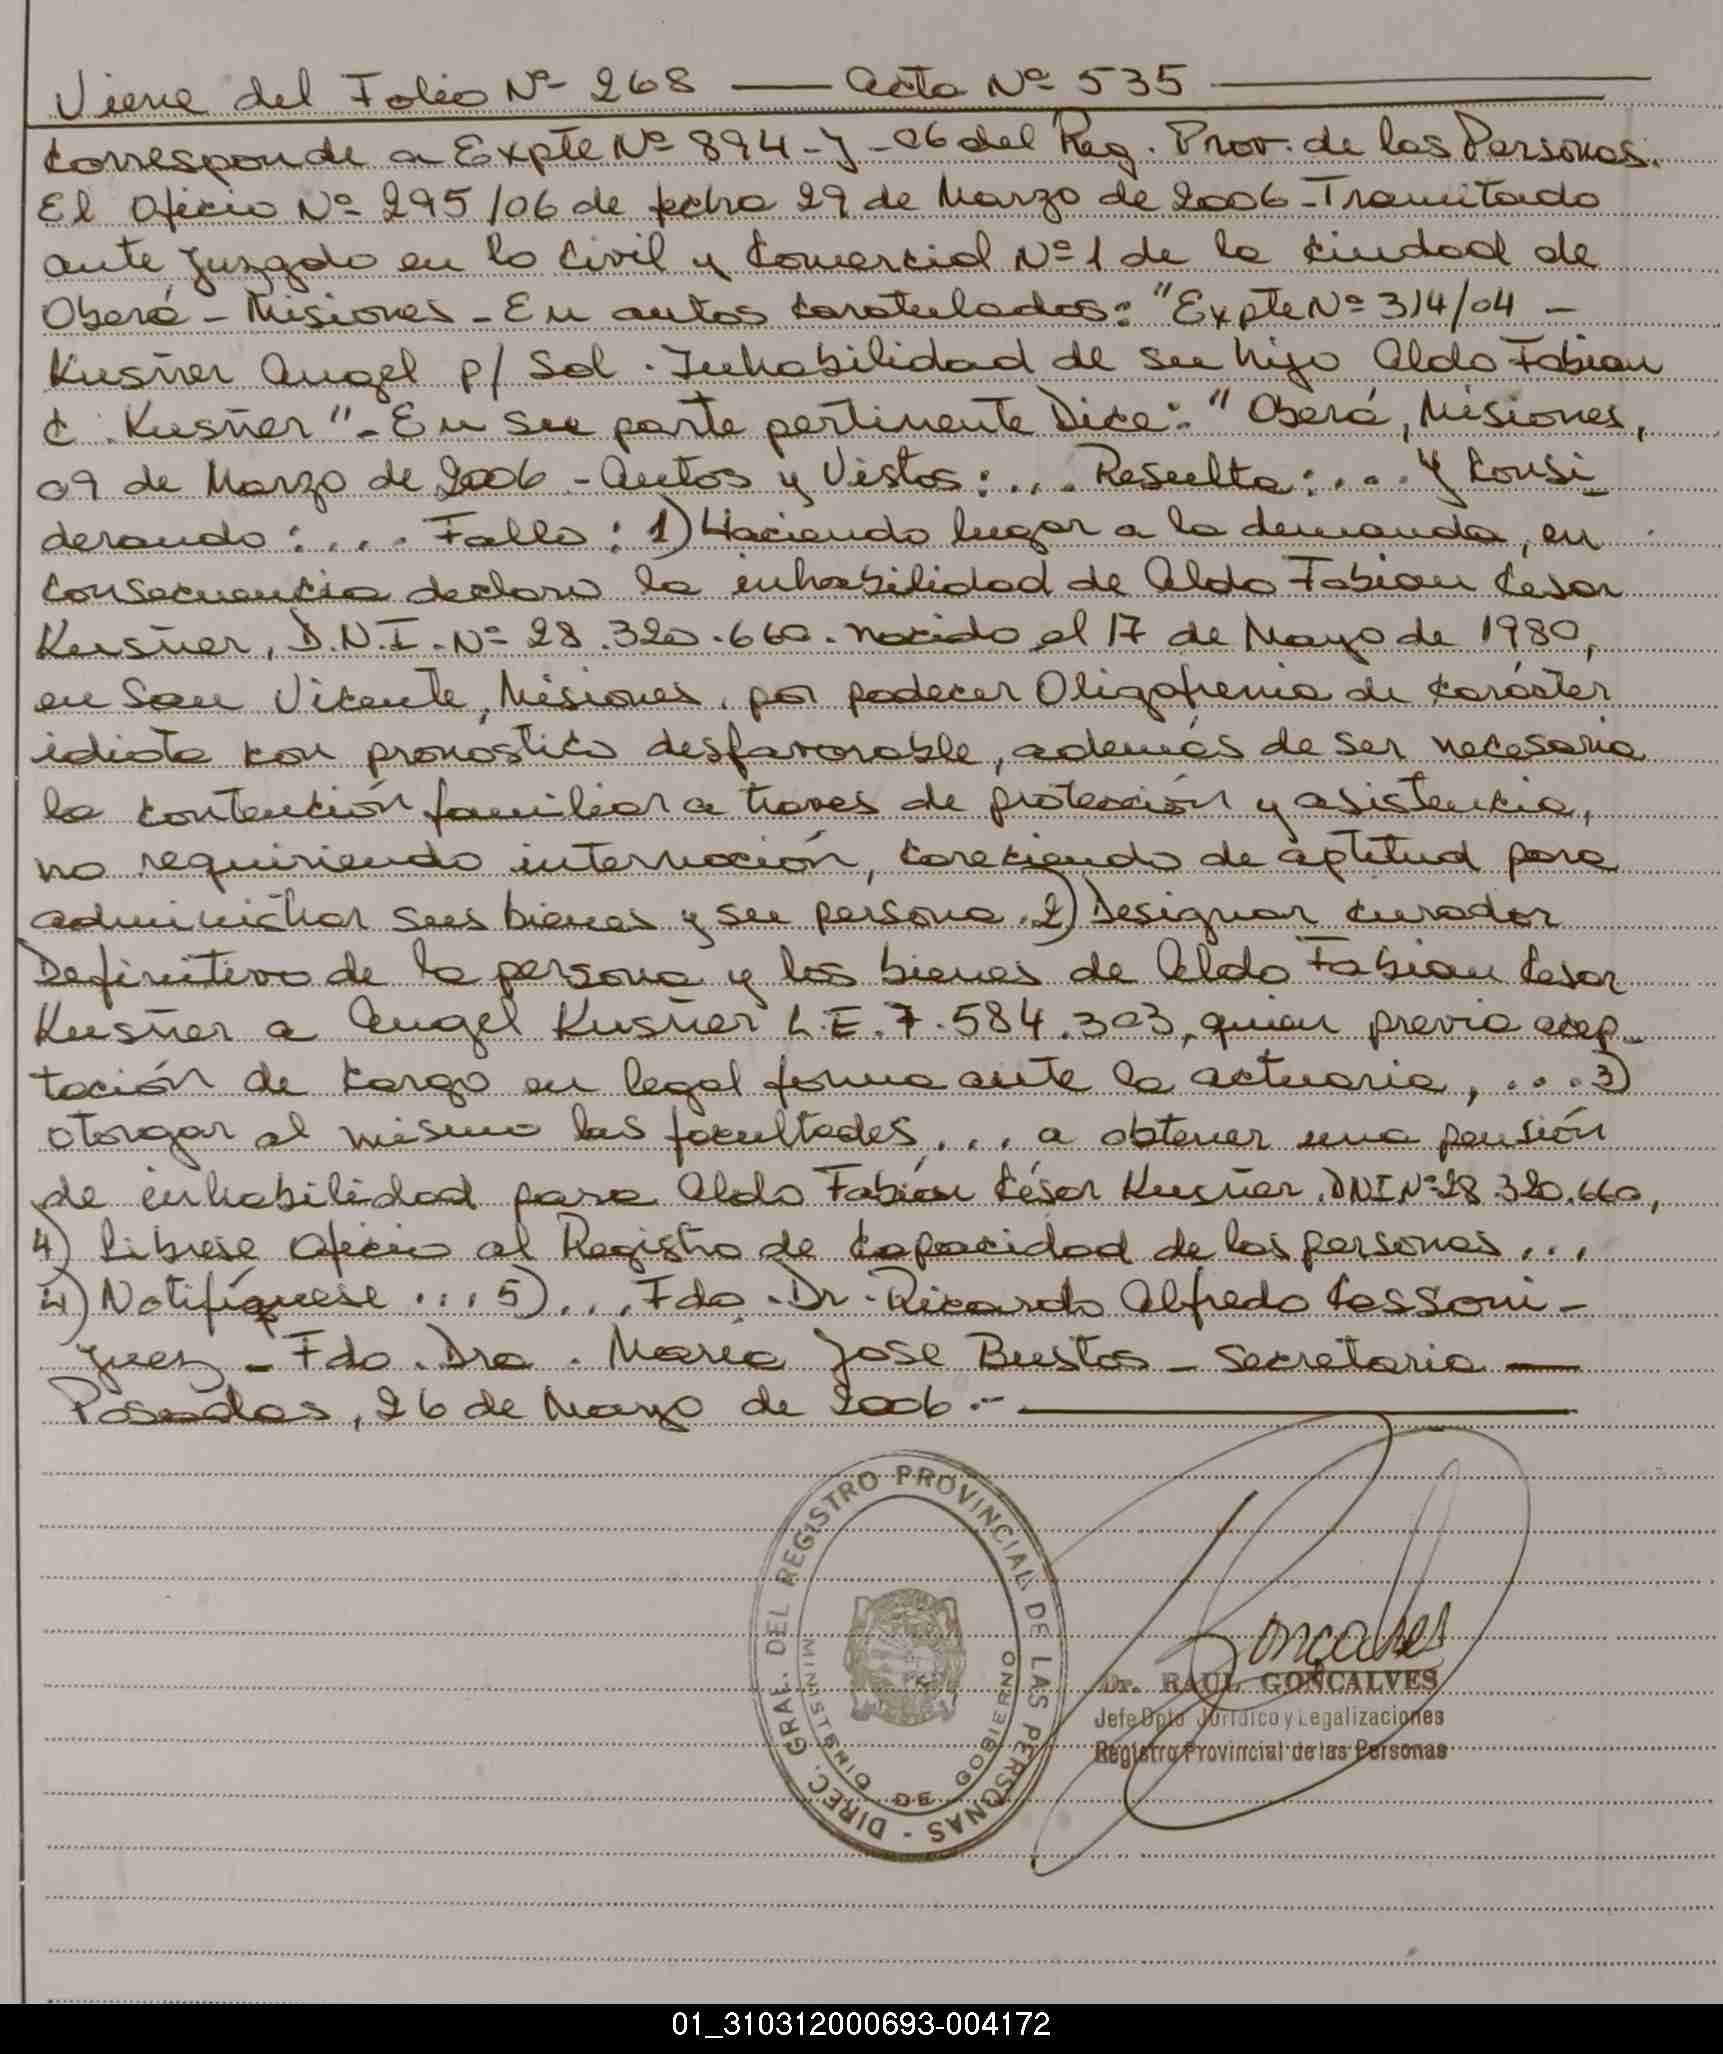 Viene del Folio Nº 268 — Acta Nº 535 —
Corresponde a Expte Nº 894-J-06 del Reg. Prov. de las Personas.
El Oficio Nº 295/06 de fecha 29 de Marzo de 2006 - Tramitado
ante Juzgado en lo Civil y Comercial Nº 1 de la Ciudad de
Oberá - Misiones - En autos Caratulados: "Expte Nº 314/04 -
Kusñer Angel p/ Sol. Inhabilidad de su hijo Aldo Fabian
C. Kusñer" - En su parte pertinente Dice: "Oberá, Misiones,
09 de Marzo de 2006 - Autos y Vistos: ... Resulta: .... y Consi-
derando: .... Fallo: 1) Haciendo lugar a la demanda, en
consecuencia declaro la inhabilidad de Aldo Fabian Cesar
Kusñer, D.N.I. Nº 28.320.660. nacido el 17 de Mayo de 1980,
en San Vicente, Misiones, por padecer Oligofrenia de carácter
idiota con pronóstico desfavorable, además de ser necesaria
la contención familiar a traves de protección y asistencia,
no requiriendo internación, careciendo de aptitud para
administrar sus bienes y su persona. 2) Designar curador
Definitivo de la persona y los bienes de Aldo Fabian Cesar
Kusñer a Angel Kusñer L.E. 7.584.303, quien previa acep-
tación de cargo en legal forma ante la actuaria, .... 3)
otorgar al mismo las facultades .... a obtener una pensión
de inhabilidad para Aldo Fabián César Kusñer, DNI Nº 28.320.660,
4) Librese Oficio al Registro de Capacidad de las personas ...
4) Notifíquese .... 5) ... Fdo. Dr. Ricardo Alfredo Cassoni -
Juez - Fdo. Dra. María Jose Bustos - Secretaria —
Posadas, 26 de Mayo de 2006.- —
DIREC. GRAL. DEL REGISTRO PROVINCIAL DE LAS PERSONAS -
MINISTERIO DE GOBIERNO
Goncalves
Dr. RAUL GONÇALVES
Jefe Dpto Jurídico y Legalizaciones
Registro Provincial de las Personas
01_310312000693-004172